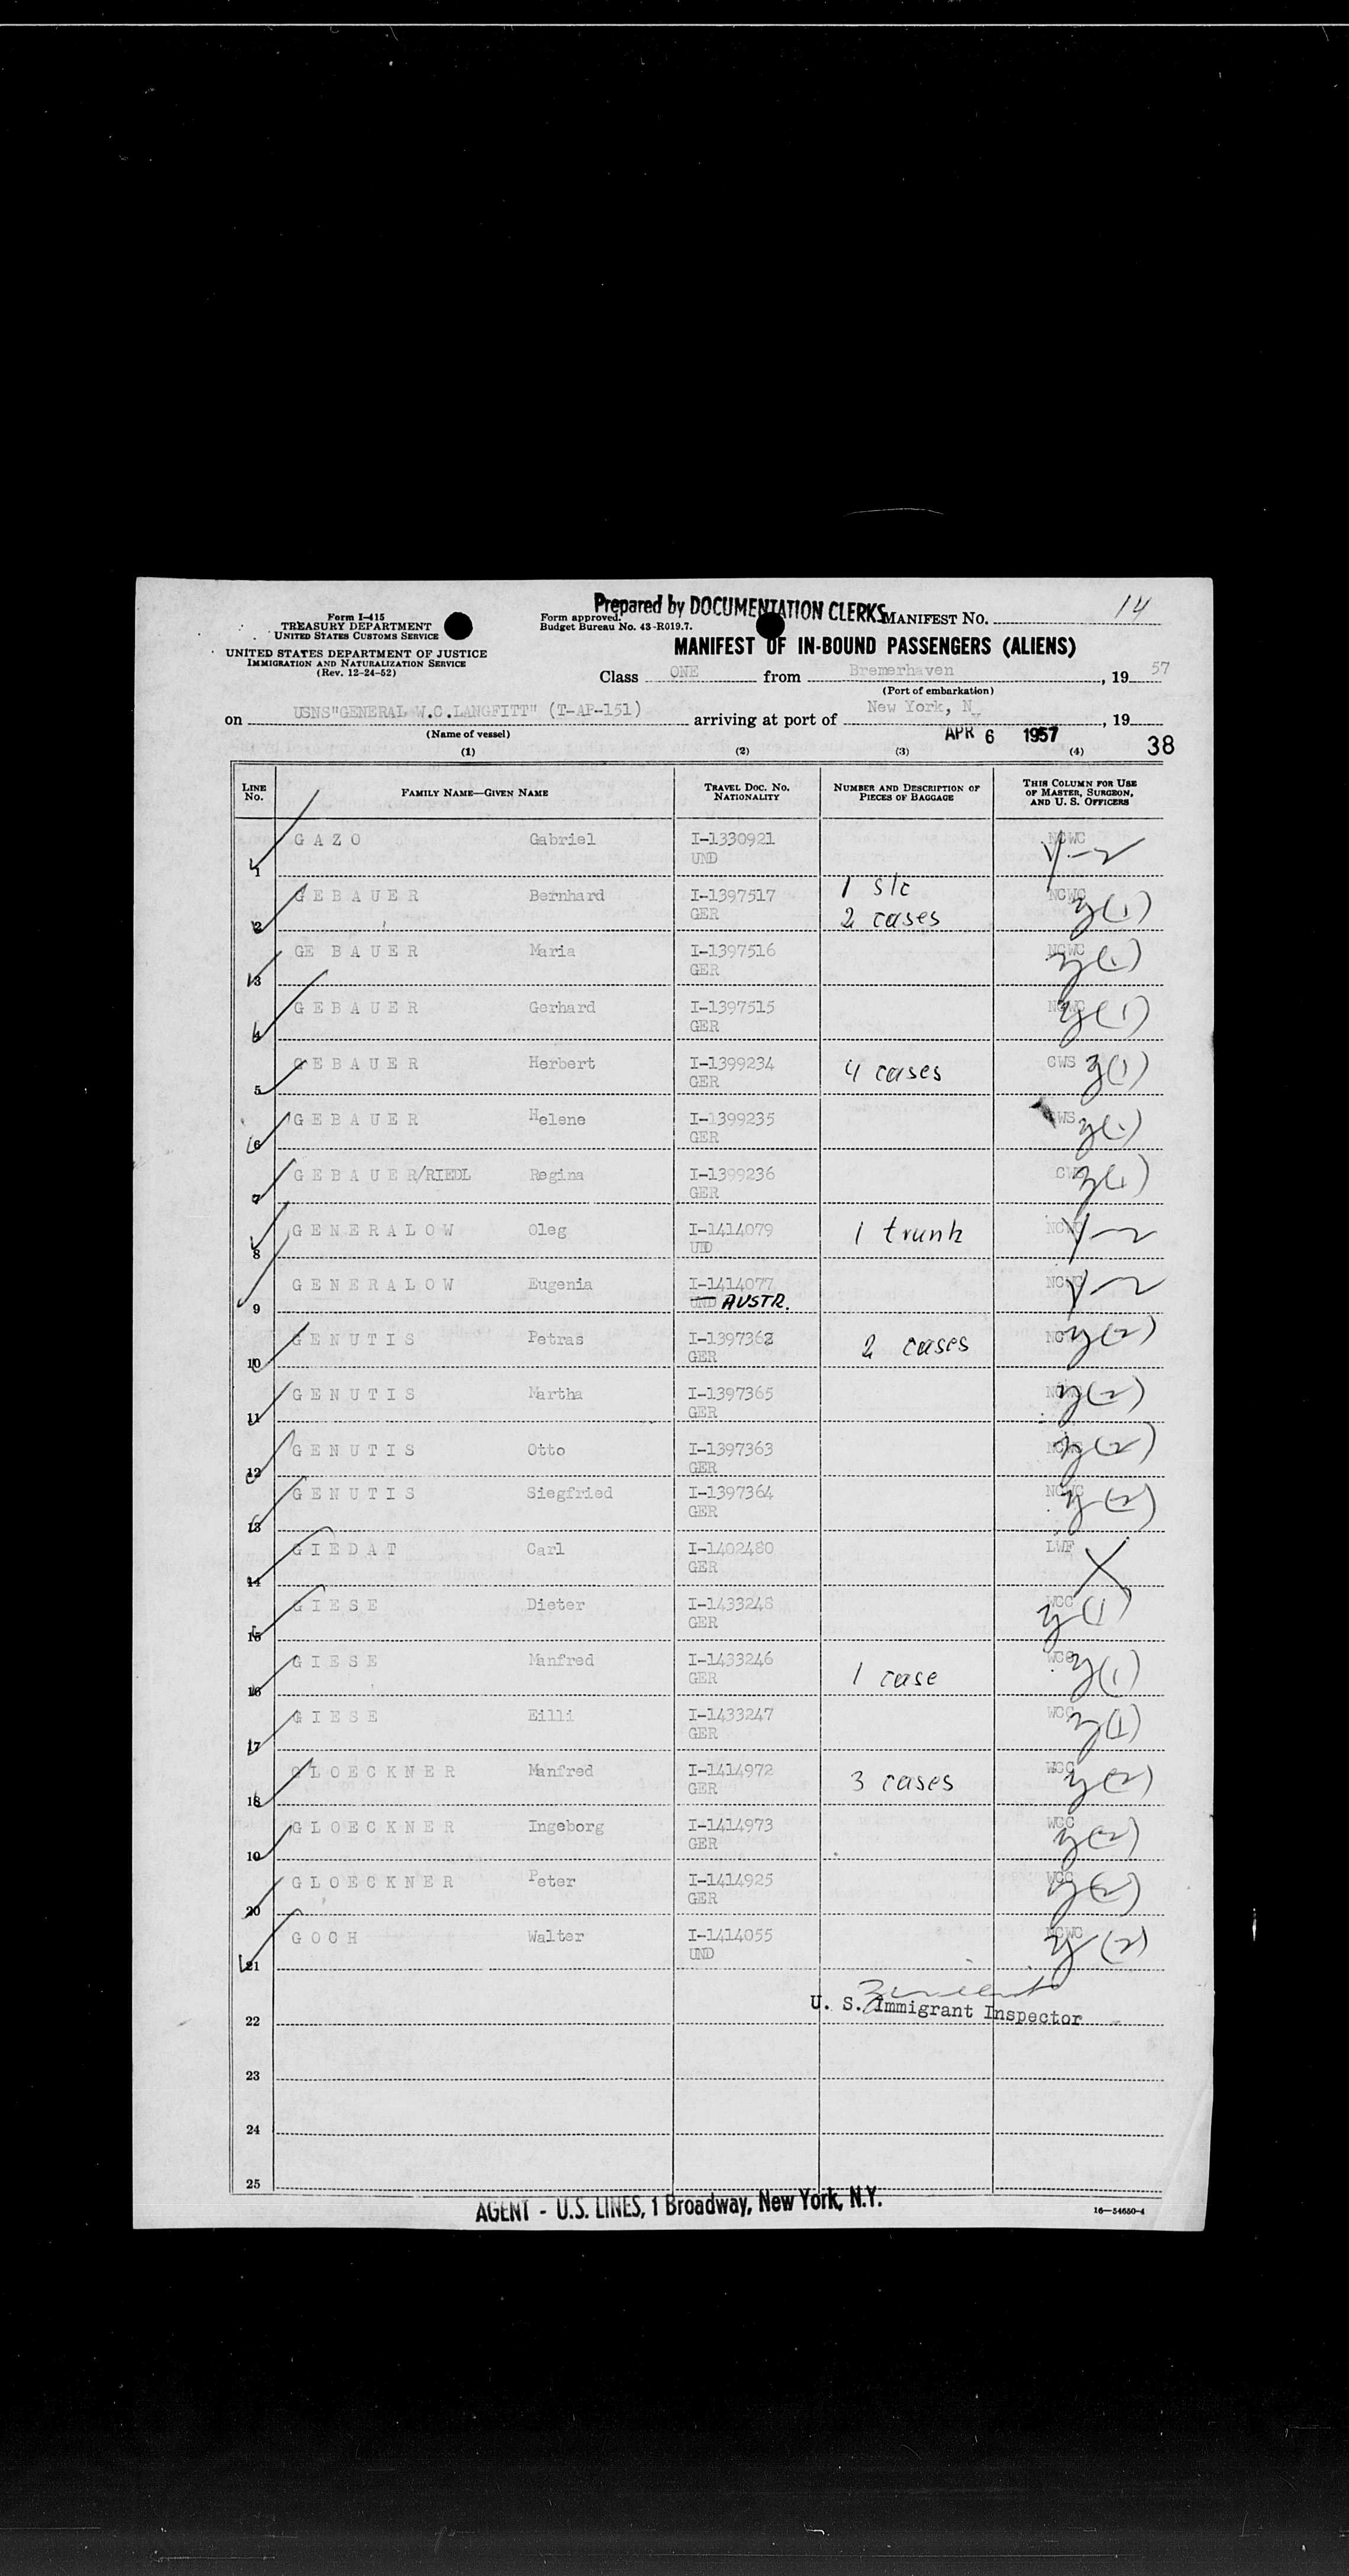 Prepared by DOCUMENTATION CLERKS
Form I-415
TREASURY DEPARTMENT
UNITED STATES CUSTOMS SERVICE
UNITED STATES DEPARTMENT OF JUSTICE
IMMIGRATION AND NATURALIZATION SERVICE
(Rev. 12-24-52)
Form approved.
Budget Bureau No. 43-R019.7.
MANIFEST NO. 14
MANIFEST OF IN-BOUND PASSENGERS (ALIENS)
Class ONE from Bremerhaven, 19 57
(Port of embarkation)
on USNS"GENERAL W.C.LANGFITT" (T-AP-151) arriving at port of New York, N, 19
(Name of vessel)
APR 6 1957
38
(1) (2) (3) (4)
LINE No. FAMILY NAME—GIVEN NAME TRAVEL DOC. NO. NATIONALITY NUMBER AND DESCRIPTION OF PIECES OF BAGGAGE THIS COLUMN FOR USE OF MASTER, SURGEON, AND U. S. OFFICERS
1 GAZO Gabriel I-1330921 UND NCWC
2 GEBAUER Bernhard I-1397517 GER 1 s/c 2 cases NCWC y(1)
3 GE BAUER Maria I-1397516 GER NCWC y(1)
4 GEBAUER Gerhard I-1397515 GER NCWC y(1)
5 GEBAUER Herbert I-1399234 GER 4 cases CWS y(1)
6 GEBAUER Helene I-1399235 GER CWS y(1)
7 GEBAUER/RIEDL Regina I-1399236 GER CWS y(1)
8 GENERALOW Oleg I-1414079 UID 1 trunk NCWC
9 GENERALOW Eugenia I-1414077 UND AUSTR. NCWC
10 GENUTIS Petras I-1397362 GER 2 cases NCWC y(2)
11 GENUTIS Martha I-1397365 GER NCWC y(2)
12 GENUTIS Otto I-1397363 GER NCWC y(2)
13 GENUTIS Siegfried I-1397364 GER NCWC y(2)
14 GIEDAT Carl I-1402480 GER LWF X
15 GIESE Dieter I-1433248 GER WCC y(1)
16 GIESE Manfred I-1433246 GER 1 case WCC y(1)
17 GIESE Eilli I-1433247 GER WCC y(1)
18 GLOECKNER Manfred I-1414972 GER 3 cases WCC y(2)
19 GLOECKNER Ingeborg I-1414973 GER WCC y(2)
20 GLOECKNER Peter I-1414925 GER WCC y(2)
21 GOCH Walter I-1414055 UND NCWC y(2)
U. S. Immigrant Inspector
22
23
24
25
AGENT - U.S. LINES, 1 Broadway, New York, N.Y.
16—54650-4